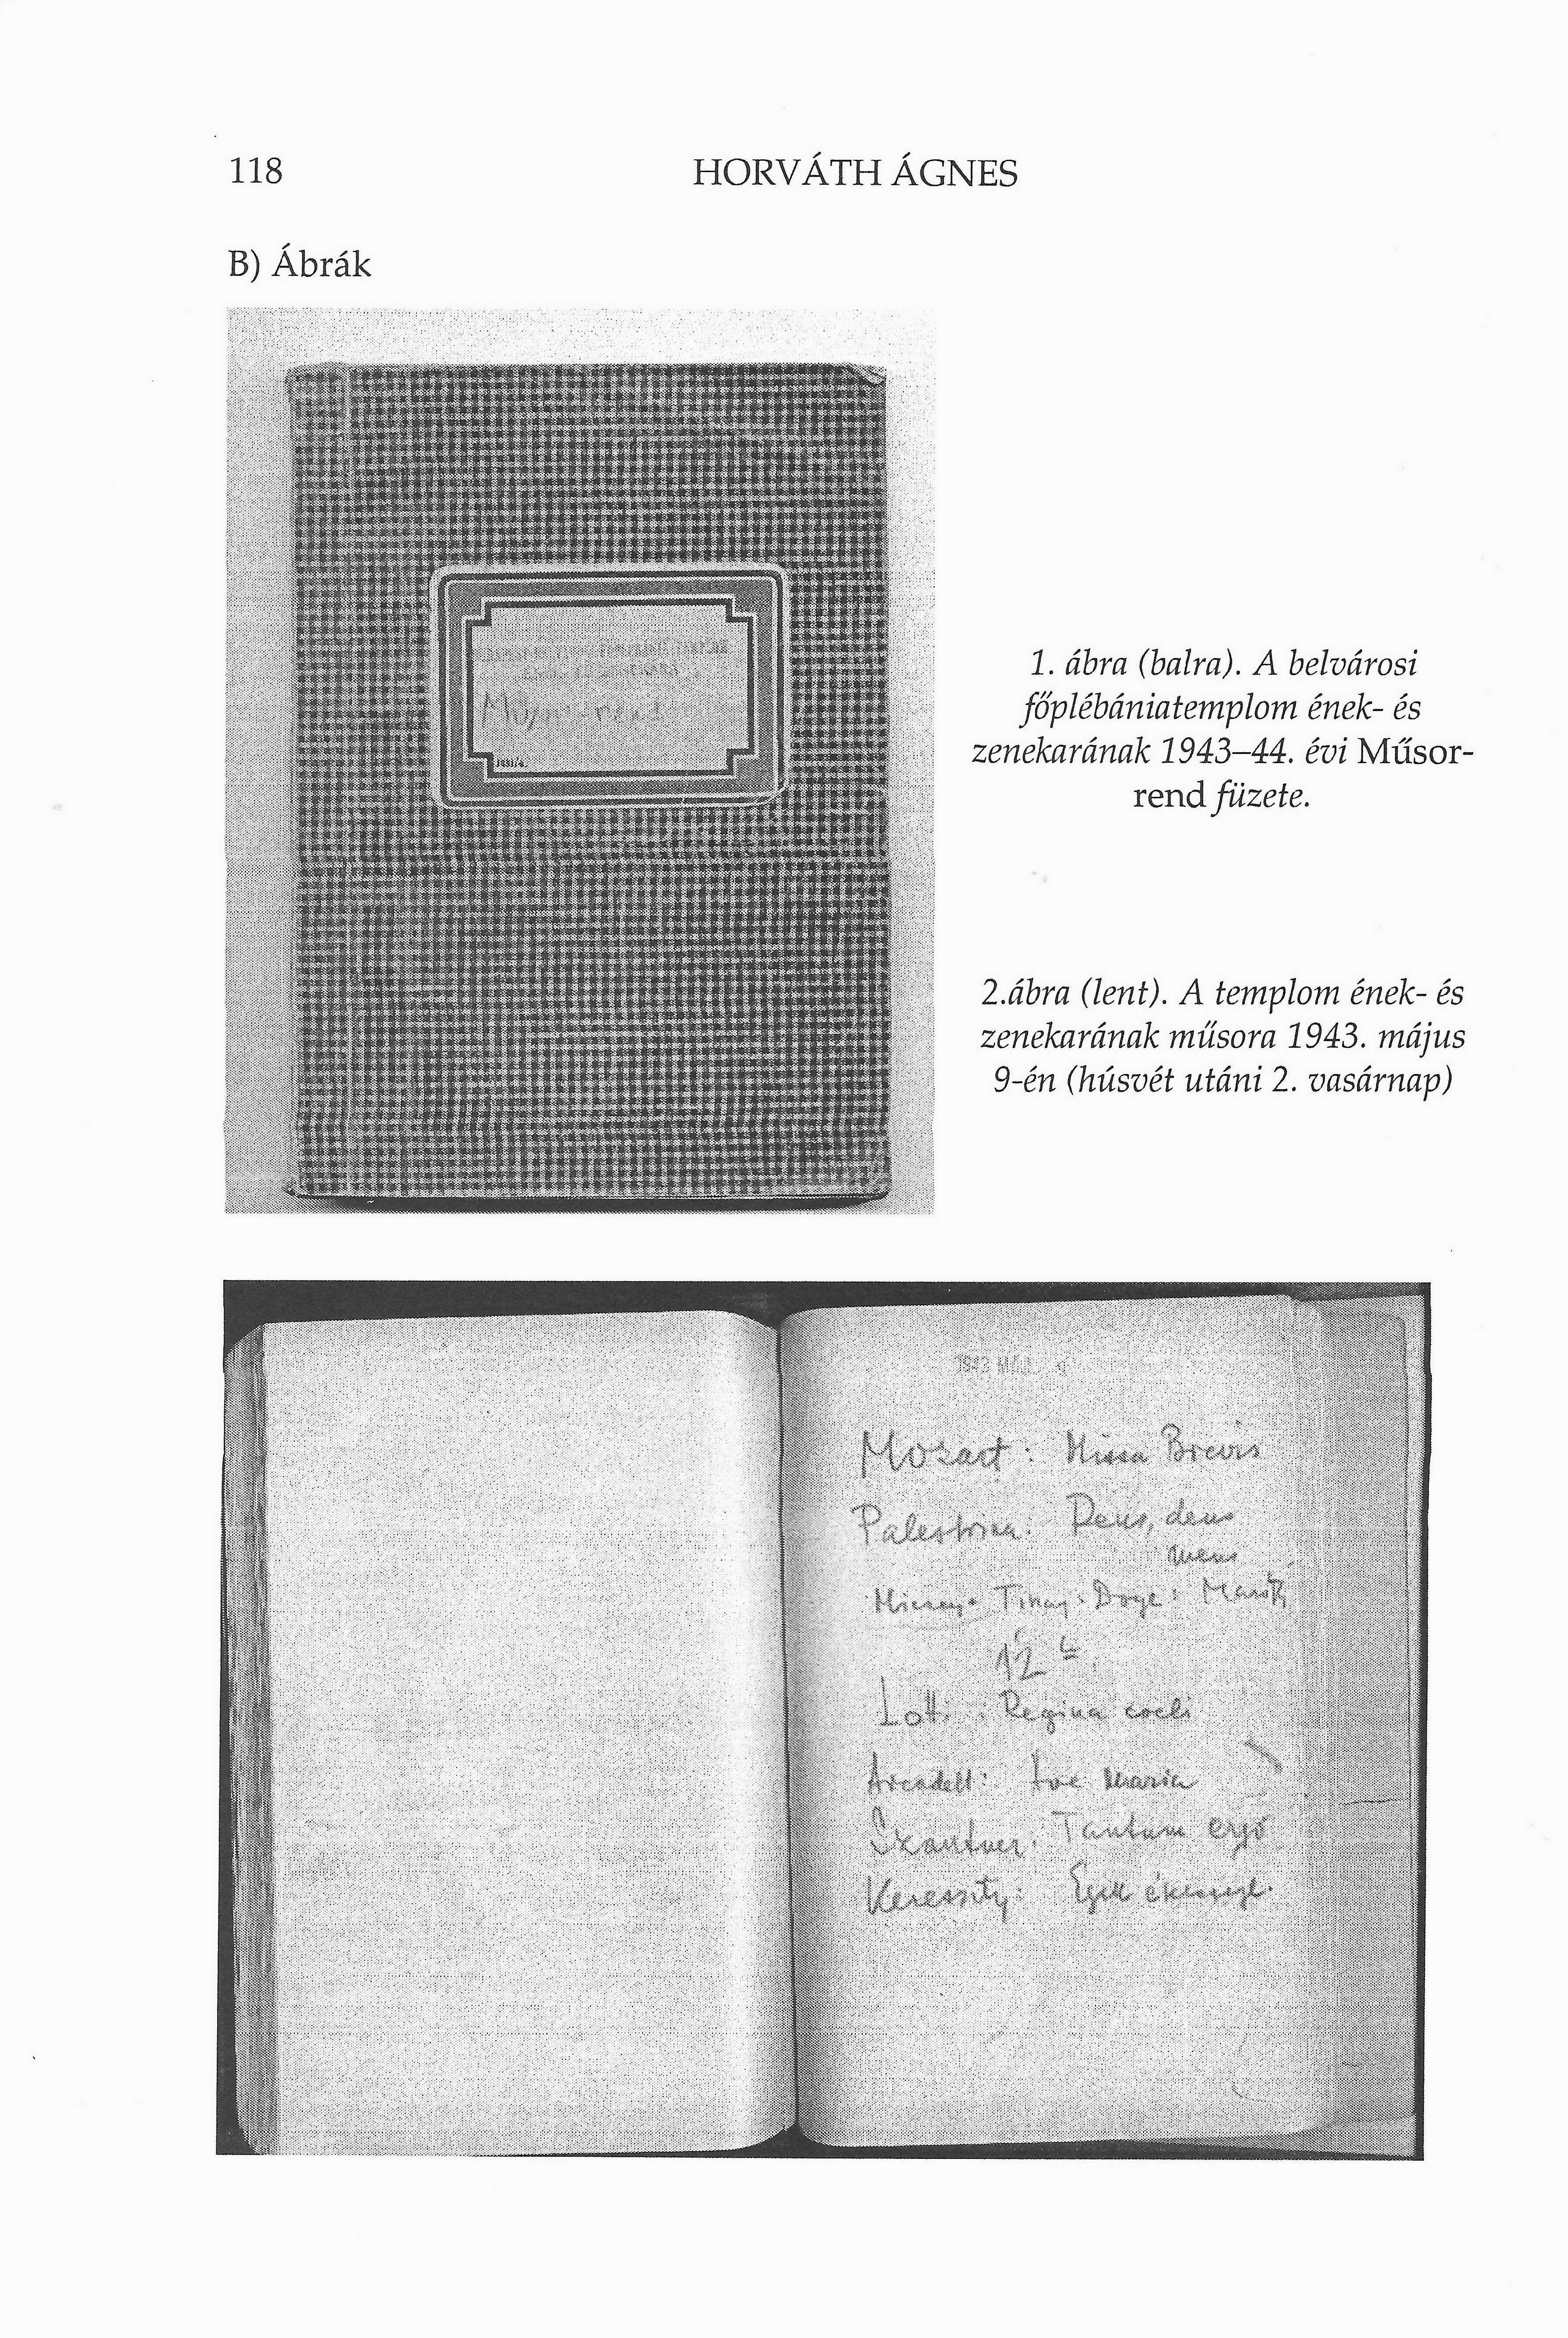 118
HORVÁTH ÁGNES
B) Ábrák
Műsor-rend
1. ábra (balra). A belvárosi
főplébániatemplom ének- és
zenekarának 1943–44. évi Műsor-
rend füzete.
2.ábra (lent). A templom ének- és
zenekarának műsora 1943. május
9-én (húsvét utáni 2. vasárnap)
1943 MÁJ. 9
Mozart: Missa Brevis
Palestrina: Deus, deus
meus
12
Lotti: Regina coeli
Arcadelt: Ave Maria
Szantner: Tantum ergo
Keressty: Egek ékessége.